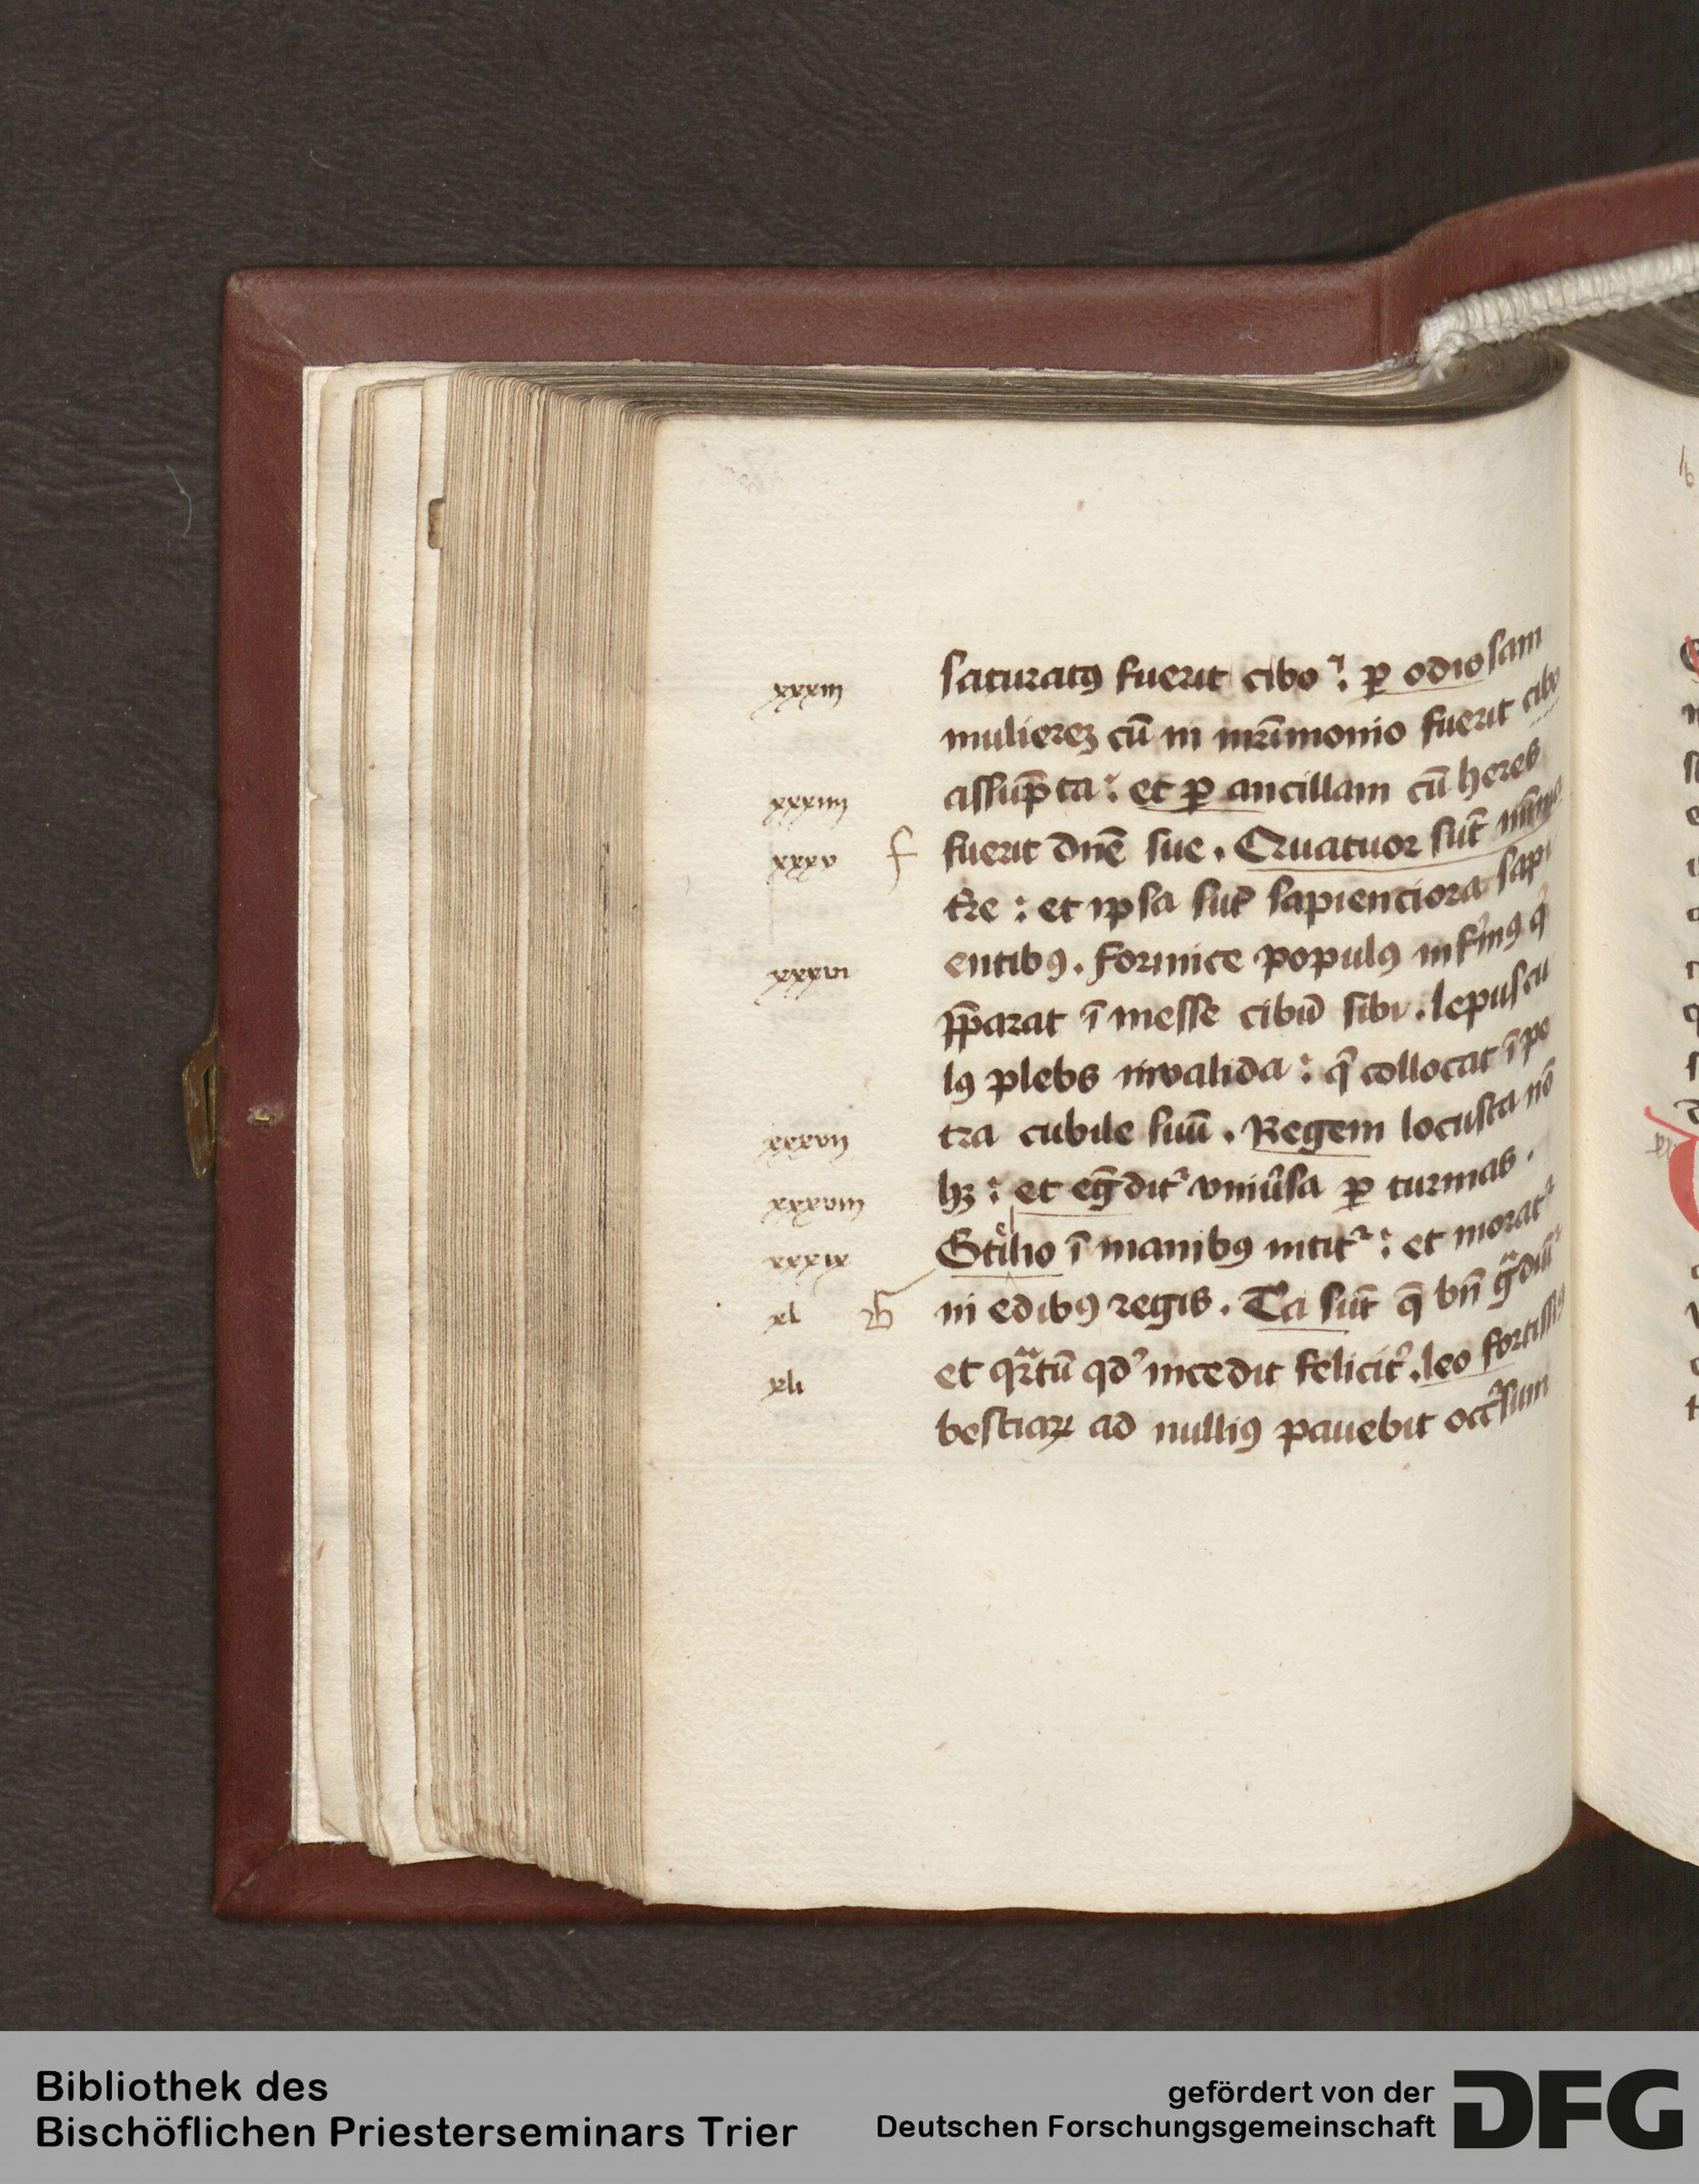 xxxiij
saturatꝰ fuerit cibo : ꝑ odiosam
mulierēꝫ cū in mr̄imonio fuerit cibo
assūpta : et ꝑ ancillam cū heres
xxxiiij
xxxv
fuerit dn̄e sue . Quatuor sūt
tr̄e : et ipsa sūt sapienciora sapi
entibꝰ . formice populꝰ infirmꝰ
xxxvi
p̄parat ī messe cibū sibi . lepuscu
lꝰ plebs invalida : q̄ collocat ī pe
tra cubile suū . Regem locusta nō
xxxvij
hꝫ : et eg̃dit᷑ vniūsa ꝑ turmas .
xxxviij
Stilio ī manibꝰ nitit᷑ : et morat᷑
xxxix
in edibꝰ regis . Tͥa sūt q̄ bn̄
xl
et qͣrtū qd᷑ incedit felicit᷑ . leo fortissiꝰ
xli
bestiaꝝ ad nulliꝰ pauebit occ᷑sum
Bibliothek des
Bischöflichen Priesterseminars Trier
gefördert von der
Deutschen Forschungsgemeinschaft
DFG